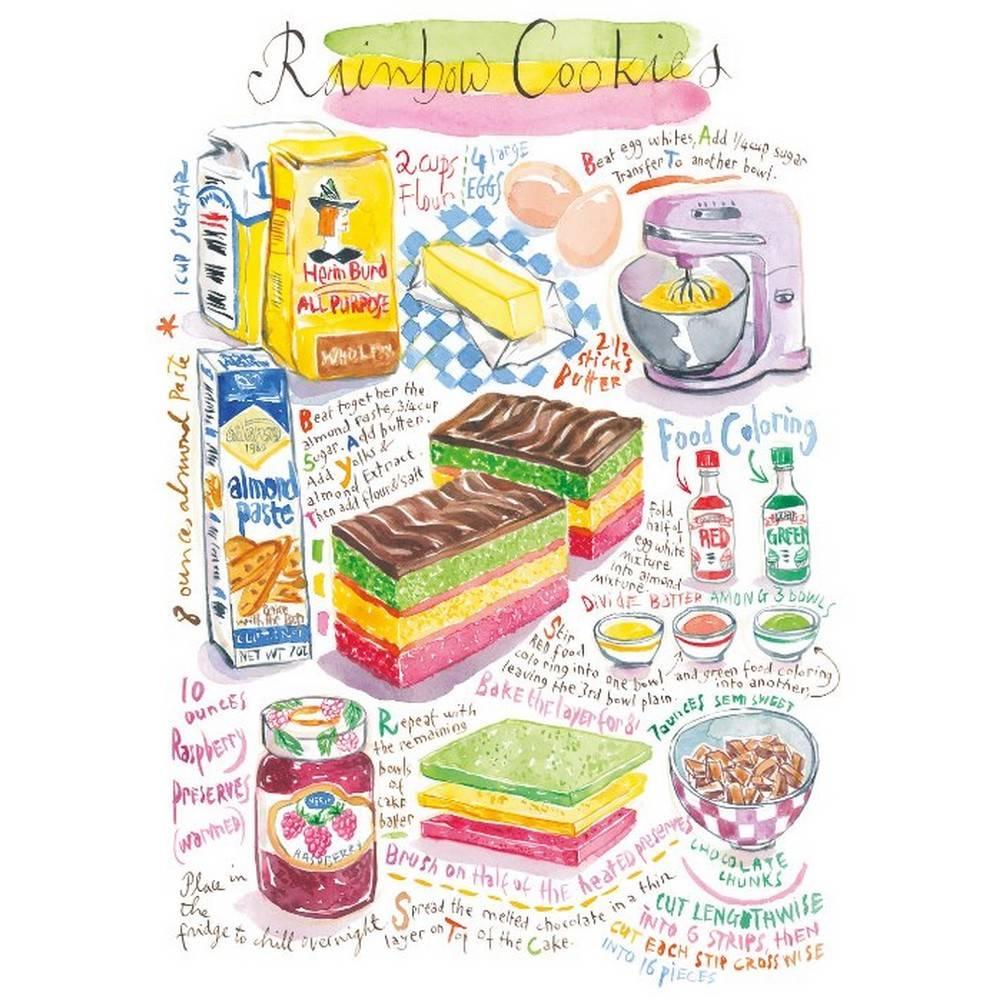 Rainbow Cookies
1 CUP SUGAR
Herin Burd
ALL PURPOSE
2 cups
Flour
4 large
EGGS
Beat egg whites, Add 1/4 cup sugar
Transfer To another bowl.
2 1/2
sticks
Butter
*
8 ounces almond Paste
1980
almond
paste
NET WT 7OZ
Beat together the
almond Paste, 3/4 cup
Sugar. Add butter.
Add yolks &
almond Extract.
Then add flour & Salt
Food Coloring
RED
GREEN
Fold
half of
egg white
mixture
into almond
mixture
DIVIDE BATTER AMONG 3 BOWLS
Stir
RED food
coloring into one bowl and green food coloring
leaving the 3rd bowl plain into another,
Bake the layer for 8'
10
ounces
Raspberry
PRESERVES
(warmed)
RASPBERRY
Repeat with
the remaining
bowls
of
cake
batter
7 ounces SEMI SWEET
CHOCOLATE
CHUNKS
Brush on Half of the heated preserves
Place in
the
fridge to chill overnight
Spread the melted chocolate in a thin
layer on Top of the Cake.
CUT LENGTHWISE
INTO 6 STRIPS, THEN
CUT EACH STIP CROSSWISE
INTO 16 PIECES